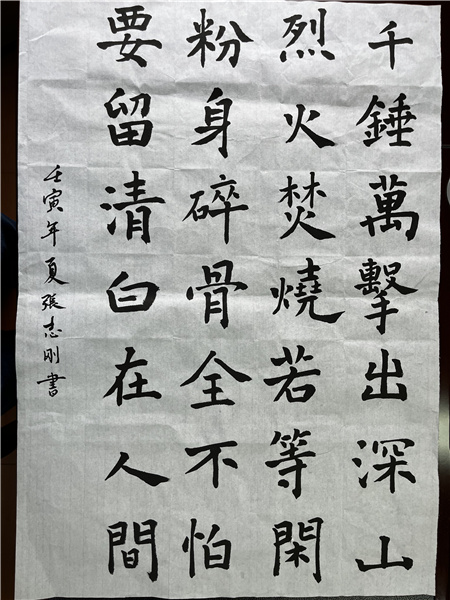 千錘萬擊出深山
烈火焚燒若等閑
粉身碎骨全不怕
要留清白在人間
壬寅年夏張志剛書